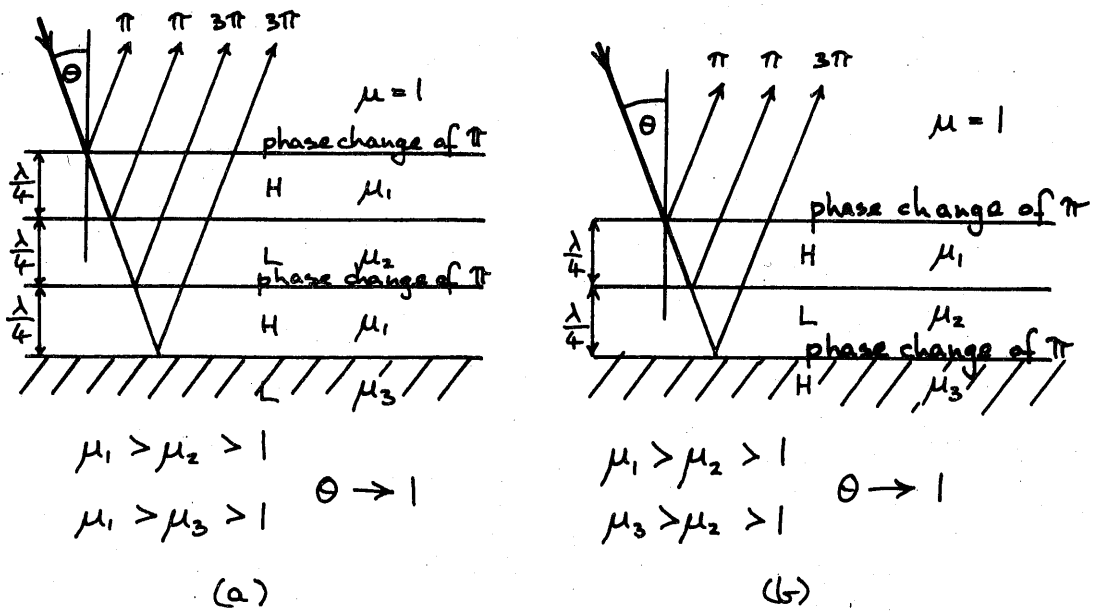 π π 3π 3π
θ
μ = 1
phase change of π
λ/4 H μ₁
λ/4 L μ₂
phase change of π
λ/4 H μ₁
L μ₃
μ₁ > μ₂ > 1
μ₁ > μ₃ > 1
θ → 1
(a)
π π 3π
θ
μ = 1
phase change of π
λ/4 H μ₁
λ/4 L μ₂
phase change of π
H μ₃
μ₁ > μ₂ > 1
μ₃ > μ₂ > 1
θ → 1
(b)